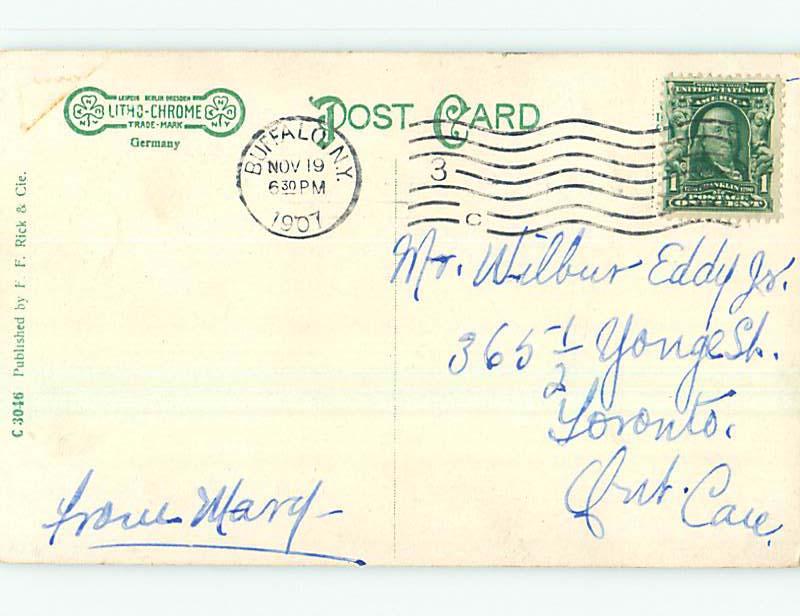 LEIPZIG BERLIN DRESDEN
LITHO-CHROME
TRADE-MARK
Germany
POST CARD
BUFFALO, N.Y.
NOV 19
6 30 PM
1907
3
C
UNITED STATES OF
AMERICA
1 FRANKLIN 1
POSTAGE
ONE CENT
C 3046 Published by F. E. Rick & Cie.
Mr. Wilbur Eddy Jr.
365 1/2 Yonge St.
Toronto.
Ont. Can.
from Mary